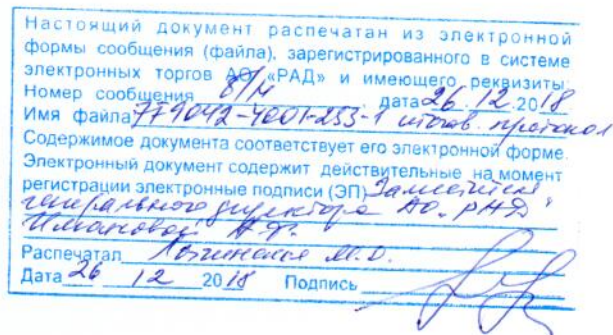 Настоящий документ распечатан из электронной
формы сообщения (файла), зарегистрированного в системе
электронных торгов АО «РАД» и имеющего реквизиты:
Номер сообщения б/н дата 26.12.2018
Имя файла 779042-4001-253-1 итогов. протокол
Содержимое документа соответствует его электронной форме.
Электронный документ содержит действительные на момент
регистрации электронные подписи (ЭП) Заместителя
генерального директора АО "РАД"
Распечатал
Дата 26 12 2018 Подпись